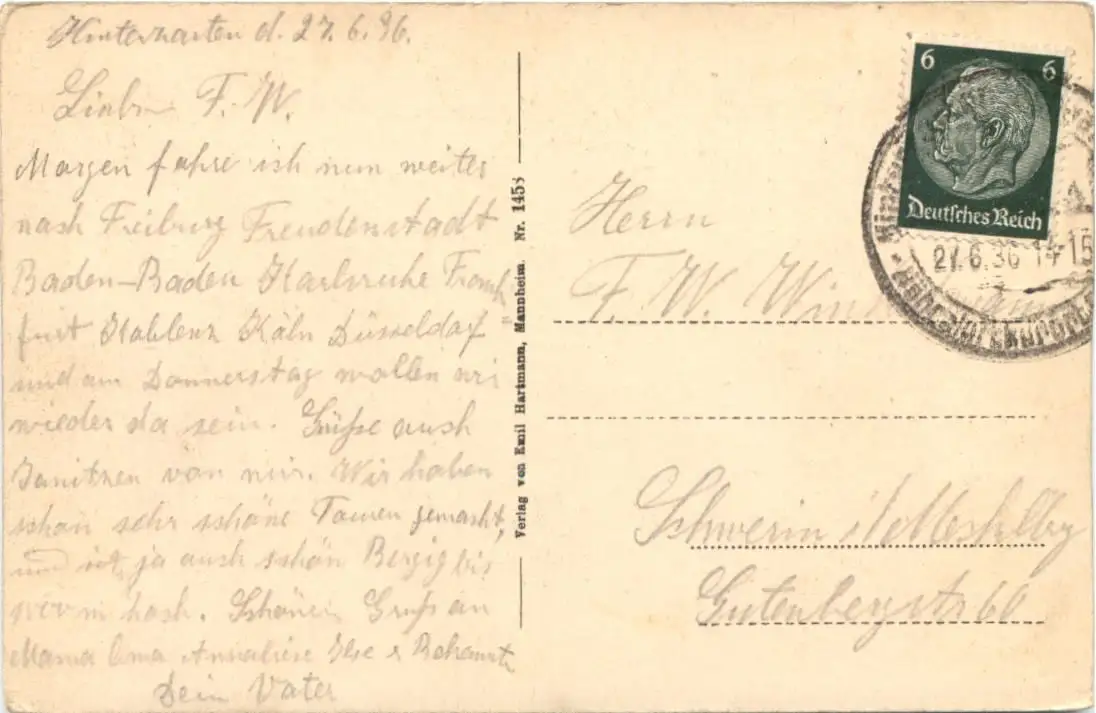 Hinterzarten d. 27.6.36.
Lieber F. W.
Morgen fahre ich nun weiter
nach Freiburg Freudenstadt
Baden-Baden Karlsruhe Frank
furt Koblenz Köln Düsseldorf
und am Donnerstag wollen wir
wieder da sein. Grüße auch
von mir. Wir haben
schon sehr schöne Touren gemacht,
und ist ja auch schön Bergig bis
m hoch. Schönen Gruß an
Mama Oma Anneliese Ilse & Bekannte
Dein Vater
Verlag von Emil Hartmann, Mannheim. Nr. 1453
6 6
Deutsches Reich
27.6.36 14-15
Herrn
F. W.
Schwerin i/Mecklbg
Gutenbergstr 60